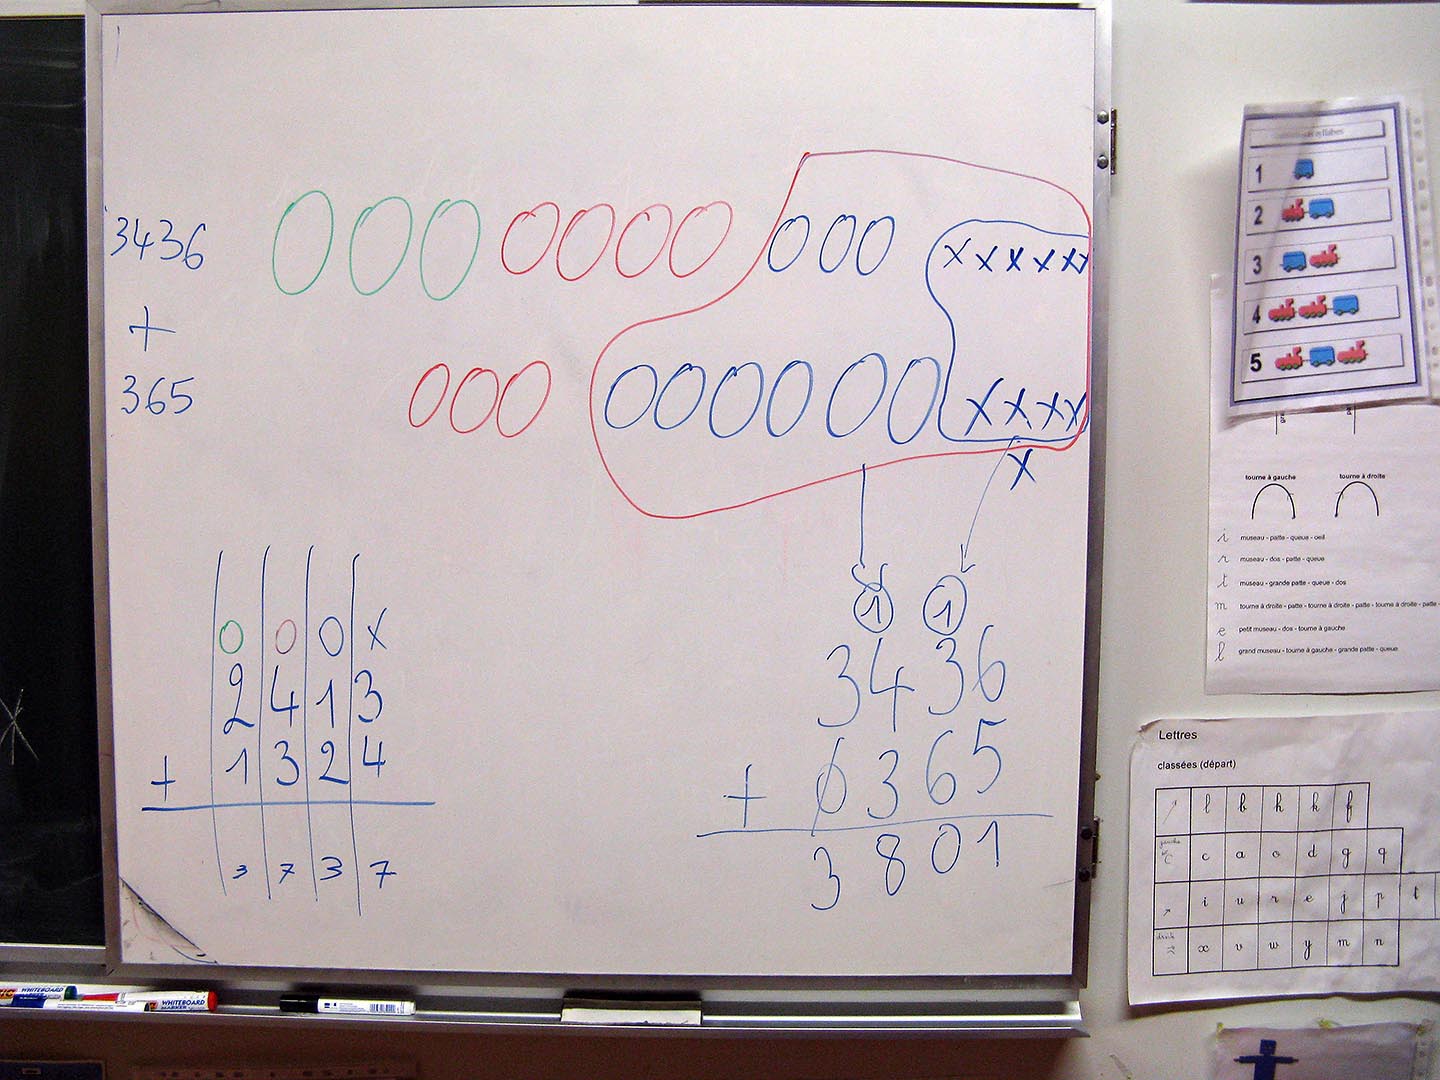 3436
+
365
x x x x x x
x x x x
x
0 0 0 x
2 4 1 3
+ 1 3 2 4
3 7 3 7
1 1
3436
+ 0365
3801
syllabes
1
2
3
4
5
tourne à gauche tourne à droite
i museau - patte - queue - oeil
r museau - dos - patte - queue
t museau - grande patte - queue - dos
m tourne à droite - patte - tourne à droite - patte - tourne à droite - patte -
e petit museau - dos - tourne à gauche
l grand museau - tourne à gauche - grande patte - queue
Lettres
classées (départ)
l b h k f
c a o d g q
i u r e j p t
x v w y m n
WHITEBOARD
WHITEBOARD MARKER